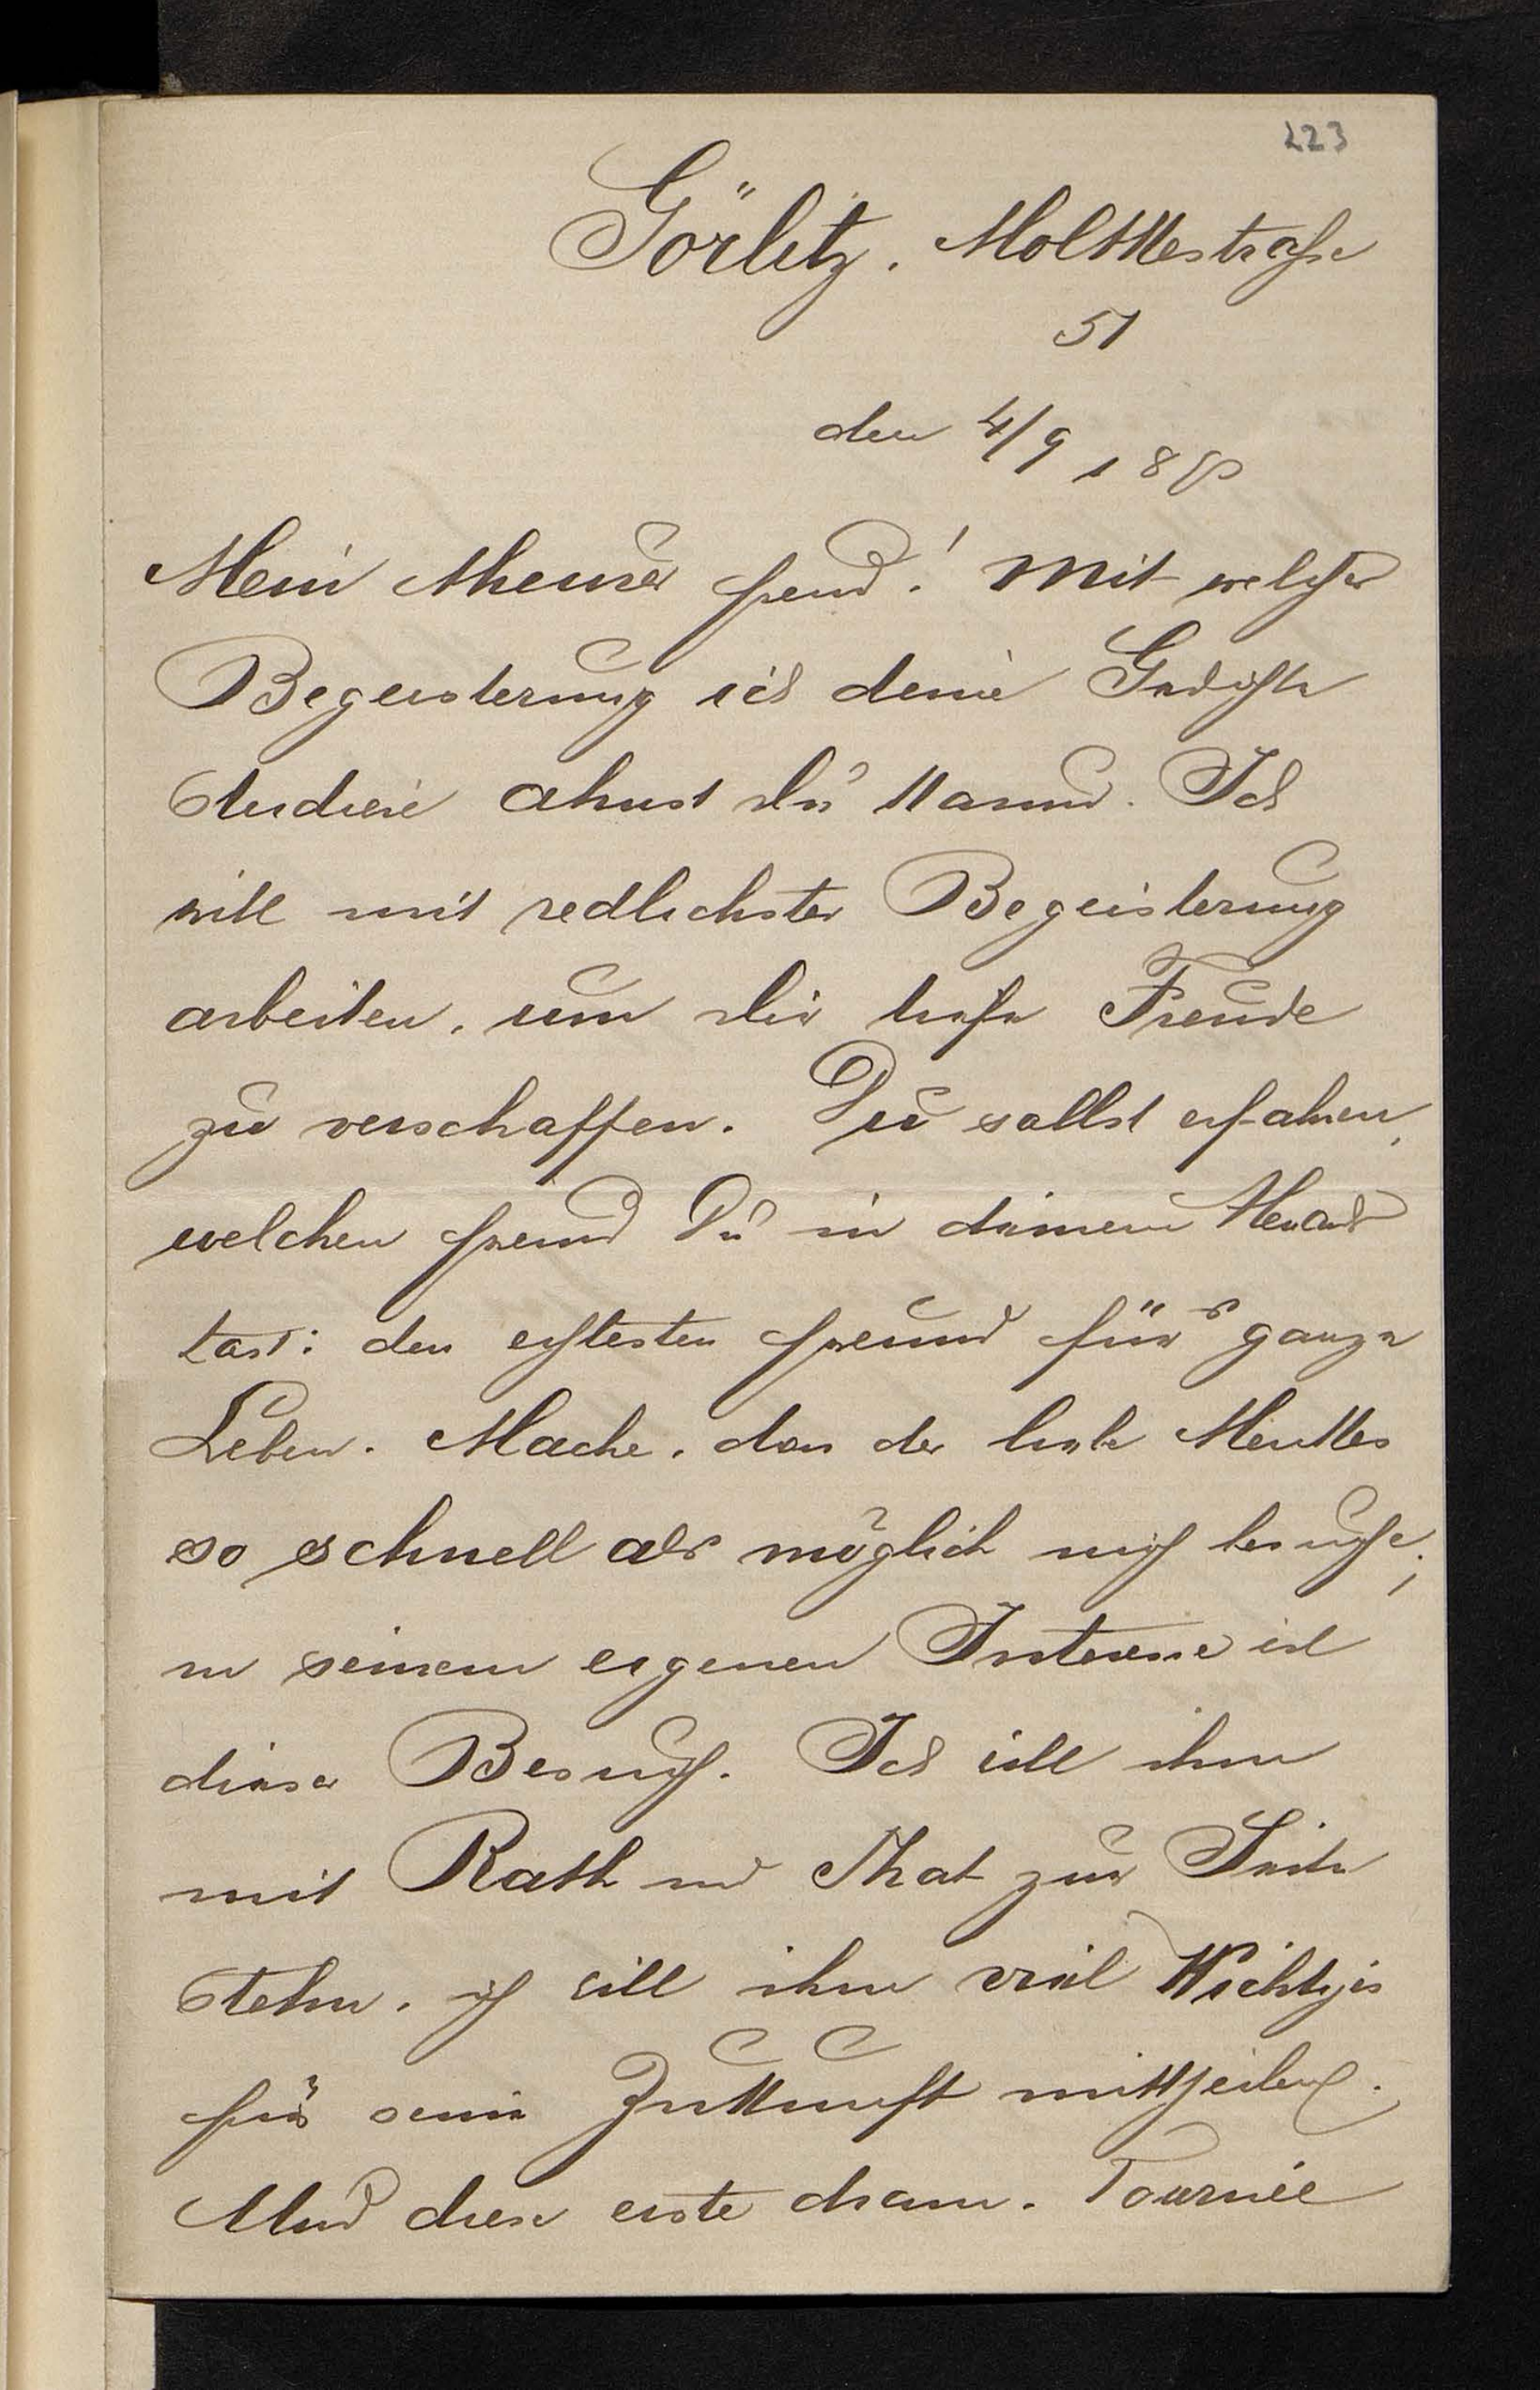 223
Görlitz. Moltkestraße
51
den 4/9 18
Mein theurer Freund! Mit welcher
Begeisterung ich deine Gedichte
studiere ahnst du kaum. Ich
will mit redlichster Begeisterung
arbeiten, um dir tiefe Freude
zu verschaffen. Du sollst erfahren,
welchen Freund Du in deinem
hast: den echtesten Freund fürs ganze
Leben. Mache, dass der liebe
so schnell als möglich mich besuche;
in seinem eigenen Interesse ist
dieser Besuch. Ich will ihm
mit Rath und That zur Seite
stehn. ich will ihm viel Wichtiges
für seine Zukunft mittheilen.
Und diese erste dram. Tournée